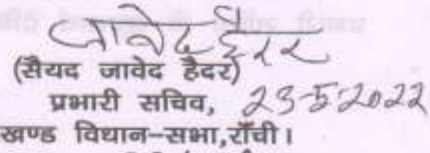 जावेद हैदर
(सैयद जावेद हैदर)
प्रभारी सचिव, 23-5-2022
खण्ड विधान-सभा,राँची।